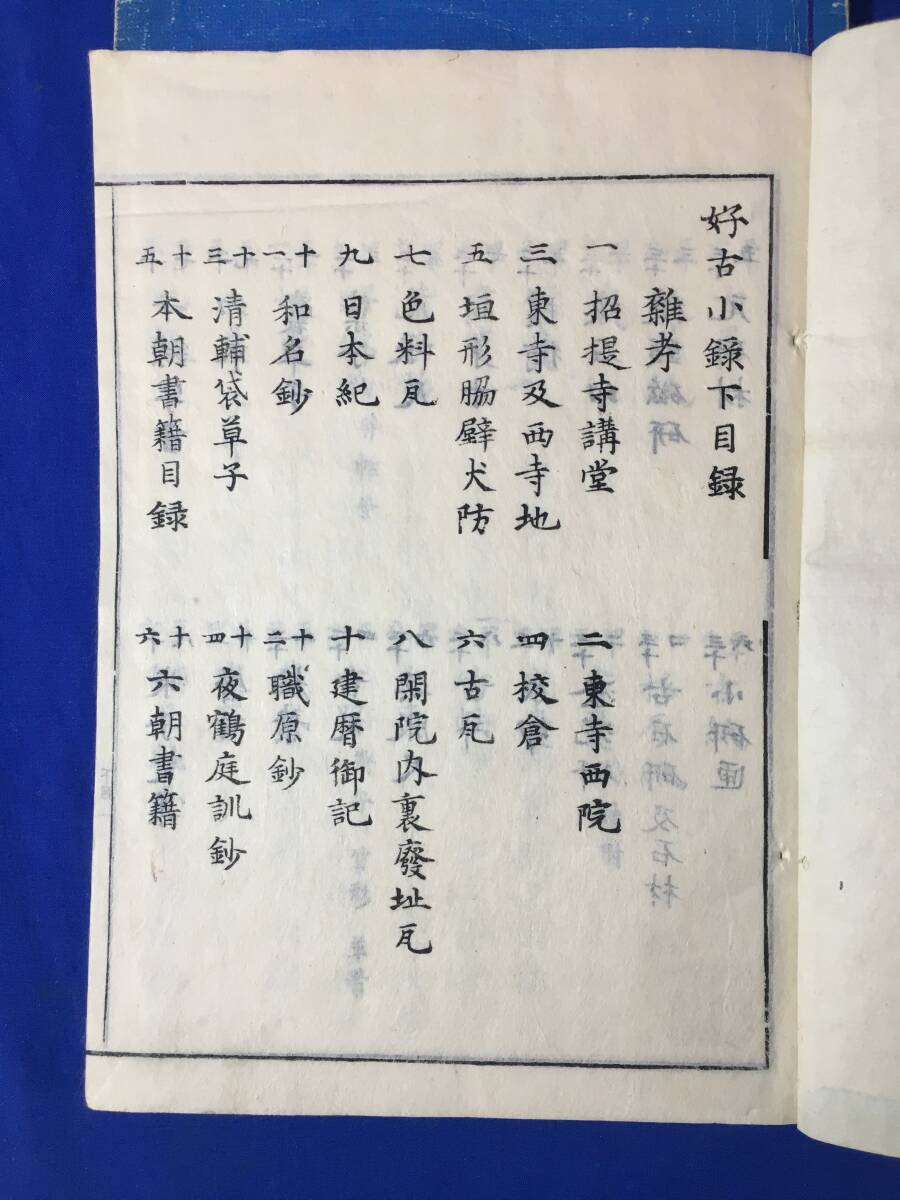 好古小錄下目録
雜考
一 招提寺講堂
二 東寺西院
三 東寺及西寺地
四 校倉
五 垣形脇壁犬防
六 古瓦
七 色料瓦
八 閑院内裏廢址瓦
九 日本紀
十 建暦御記
十一 和名鈔
十二 職原鈔
十三 清輔袋草子
十四 夜鶴庭訓鈔
十五 本朝書籍目録
十六 六朝書籍